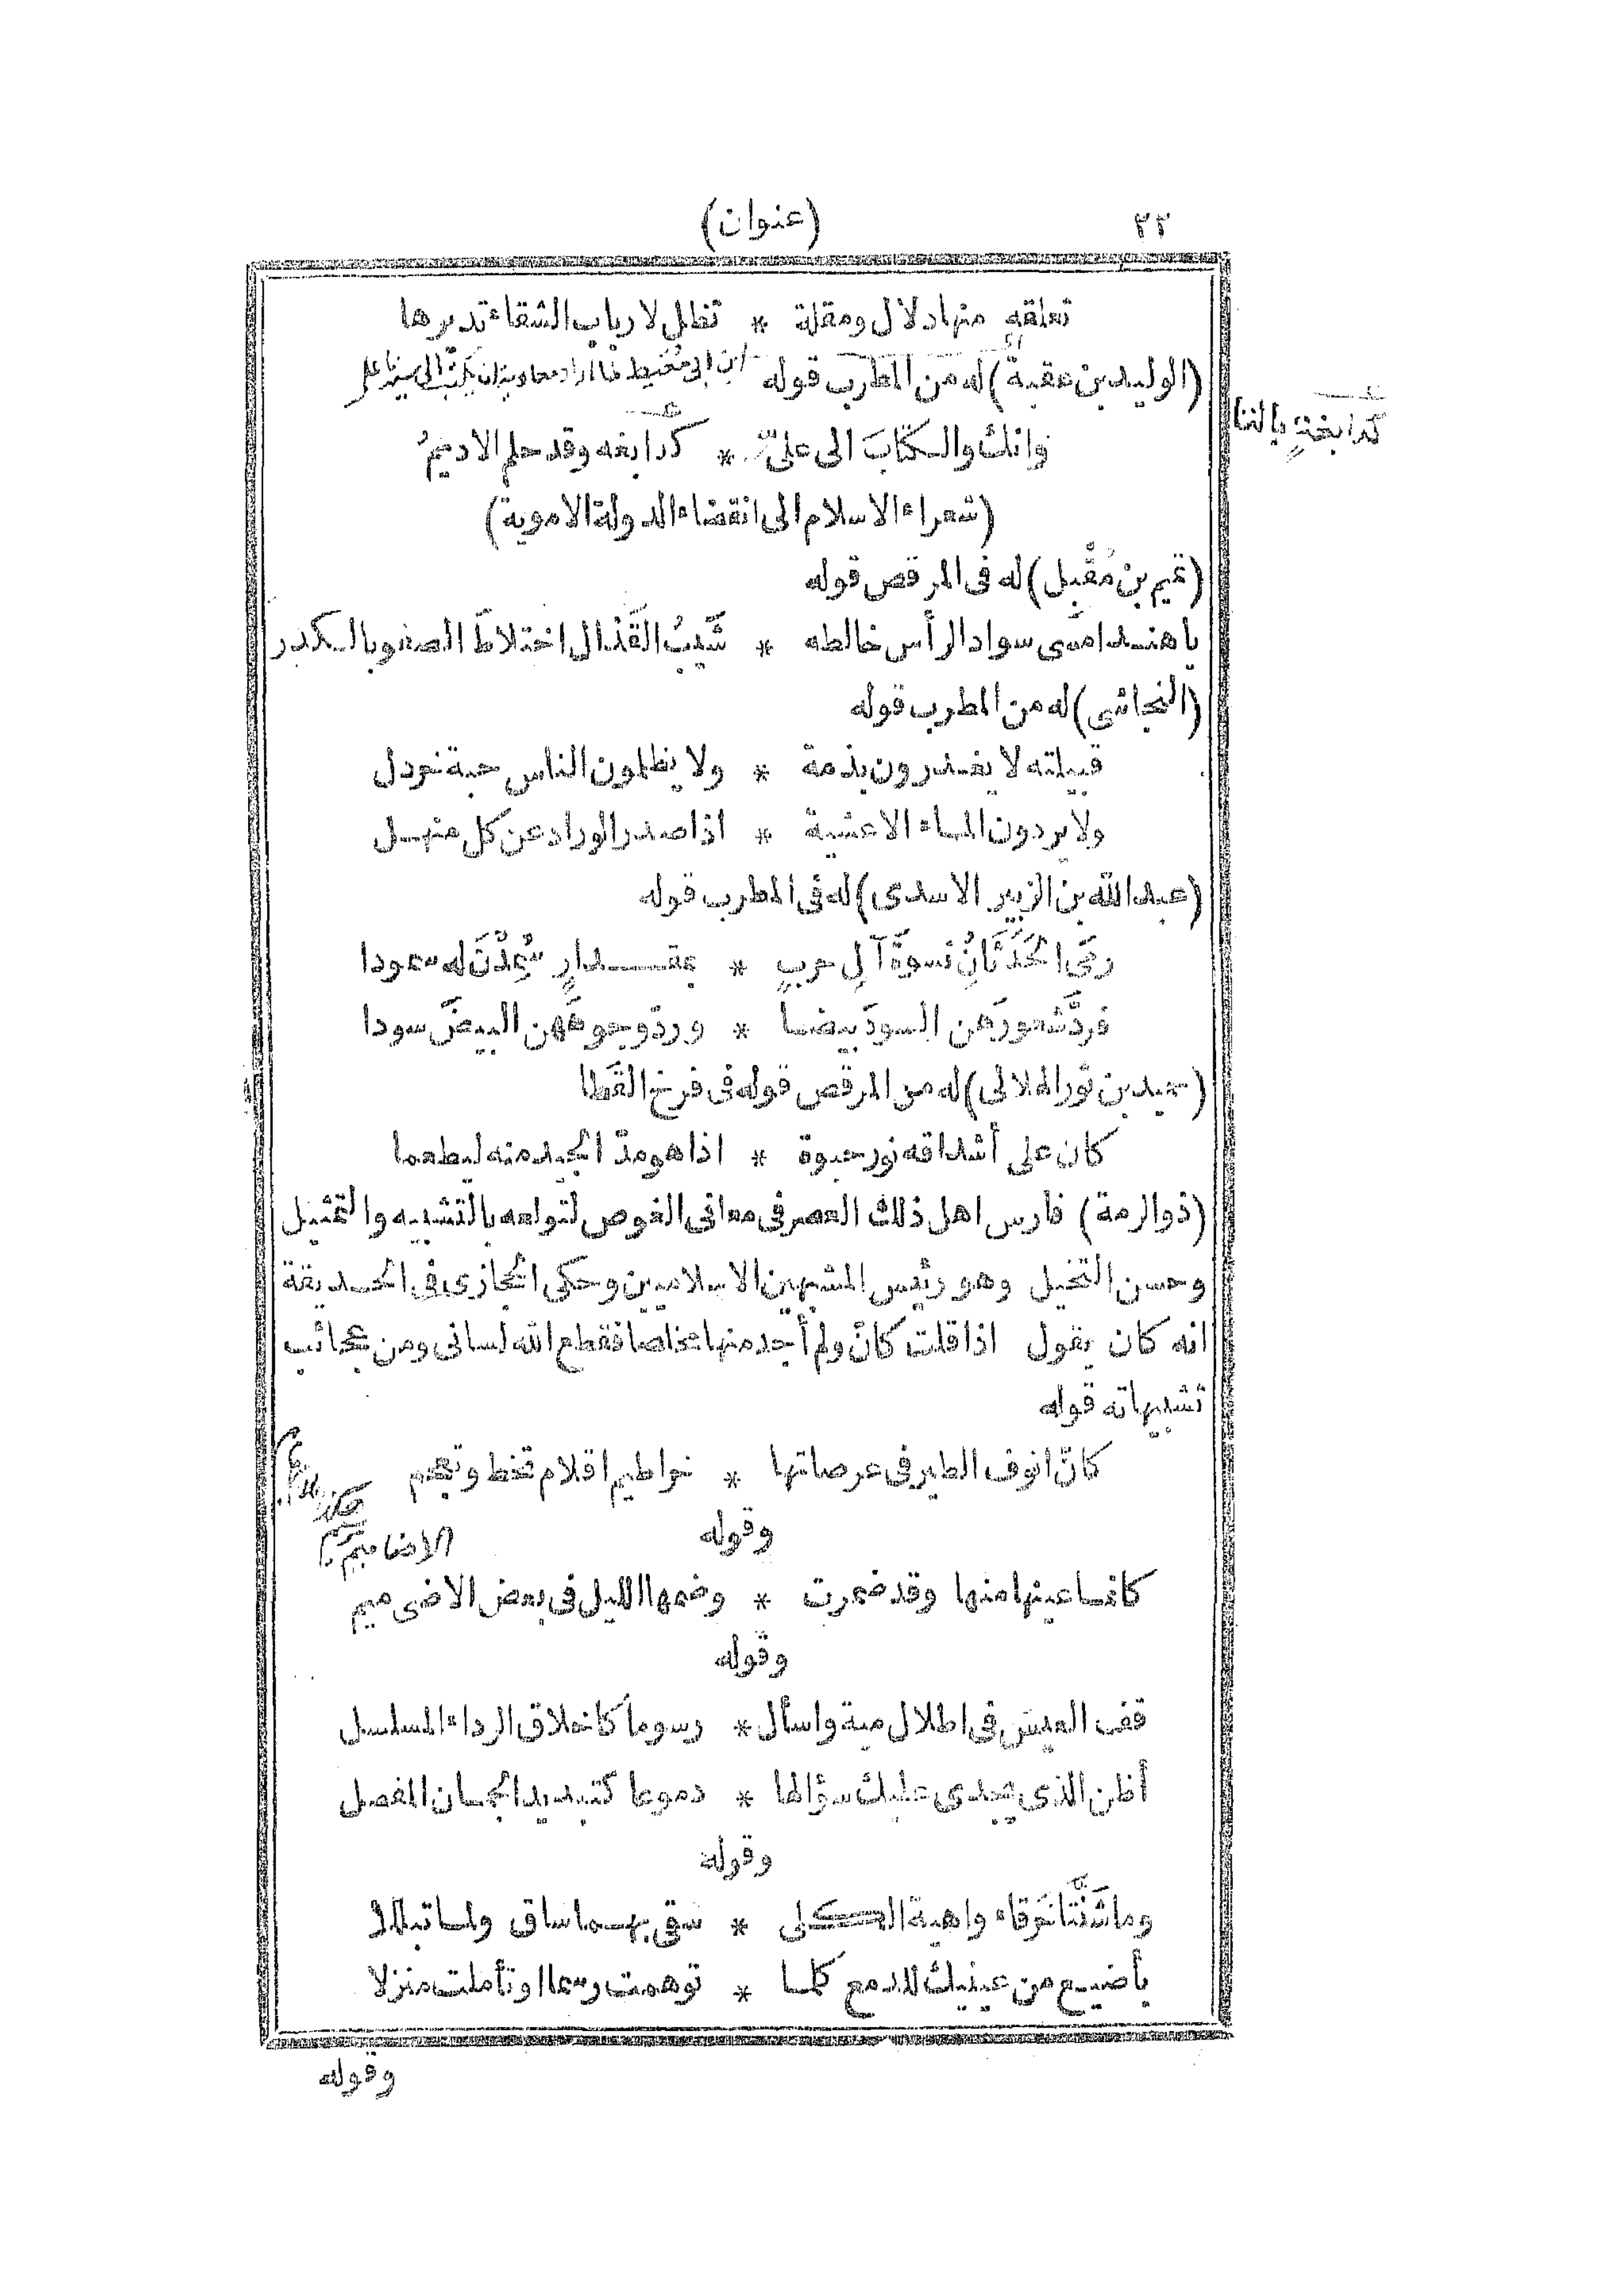 (عنوان) ٣٢
تعلقه منها دلال ومقلة * تظل لارباب الشقاء تديرها
(الوليد بن عقبة) له من المطرب قوله ابن ابى معيط لما اراد معاوية ان يكتب الى سيدنا على
وانك والكتابَ الى علىّ * كدابغه وقد حلم الاديمُ
كدابغةٍ بالتا
(شعراء الاسلام الى انقضاء الدولة الاموية)
(تميم بن مُقْبِل) له فى المرقص قوله
ياهند امسى سواد الرأس خالطه * شَيبُ القَذال اختلاطَ الصفو بالكدر
(النجاشى) له من المطرب قوله
قبيلته لا يغدرون بذمة * ولا يظلمون الناس حبة خردل
ولا يردون الماء الا عشية * اذا صدر الوراد عن كل منهل
(عبد الله بن الزبير الاسدى) له فى المطرب قوله
رمَى الحَدَثَانُ نسوةَ آلِ حربٍ * بمقدارٍ سُمِدْنَ له سمودا
فردّ شعورَهن السودَ بيضا * وردّ وجوهَهن البيضَ سودا
(حميد بن ثور الهلالى) له من المرقص قوله فى فرخ القَطا
كان على أشداقه نور حبوة * اذا هو مدّ الجيد منه ليطعما
(ذو الرمة) فارس اهل ذلك العصر فى معانى الغوص لتولعه بالتشبيه والتمثيل
وحسن التخيل وهو رئيس المشبهين الاسلاميين وحكى الحجازى فى الحديقة
انه كان يقول اذا قلت كانّ ولم أجد منها مخلصا فقطع الله لسانى ومن عجائب
تشبيهاته قوله
كانّ انوف الطير فى عرصاتها * خراطيم اقلام تخط وتعجم
وقوله
الاضاميم
كانما عينها منها وقد ضمرت * وضمها الليل فى بعض الاضى ميم
وقوله
قف العيس فى اطلال مية واسأل * رسوما كاخلاق الرداء المسلسل
أظن الذى يجدى عليك سؤالها * دموعا كتبديد الجمان المفصل
وقوله
وما شَنَّتا خَرقاء واهية الكلى * سقى بهما ساق ولما تبللا
بأضيع من عينيك للدمع كلما * توهمت رسما او تأملت منزلا
وقوله